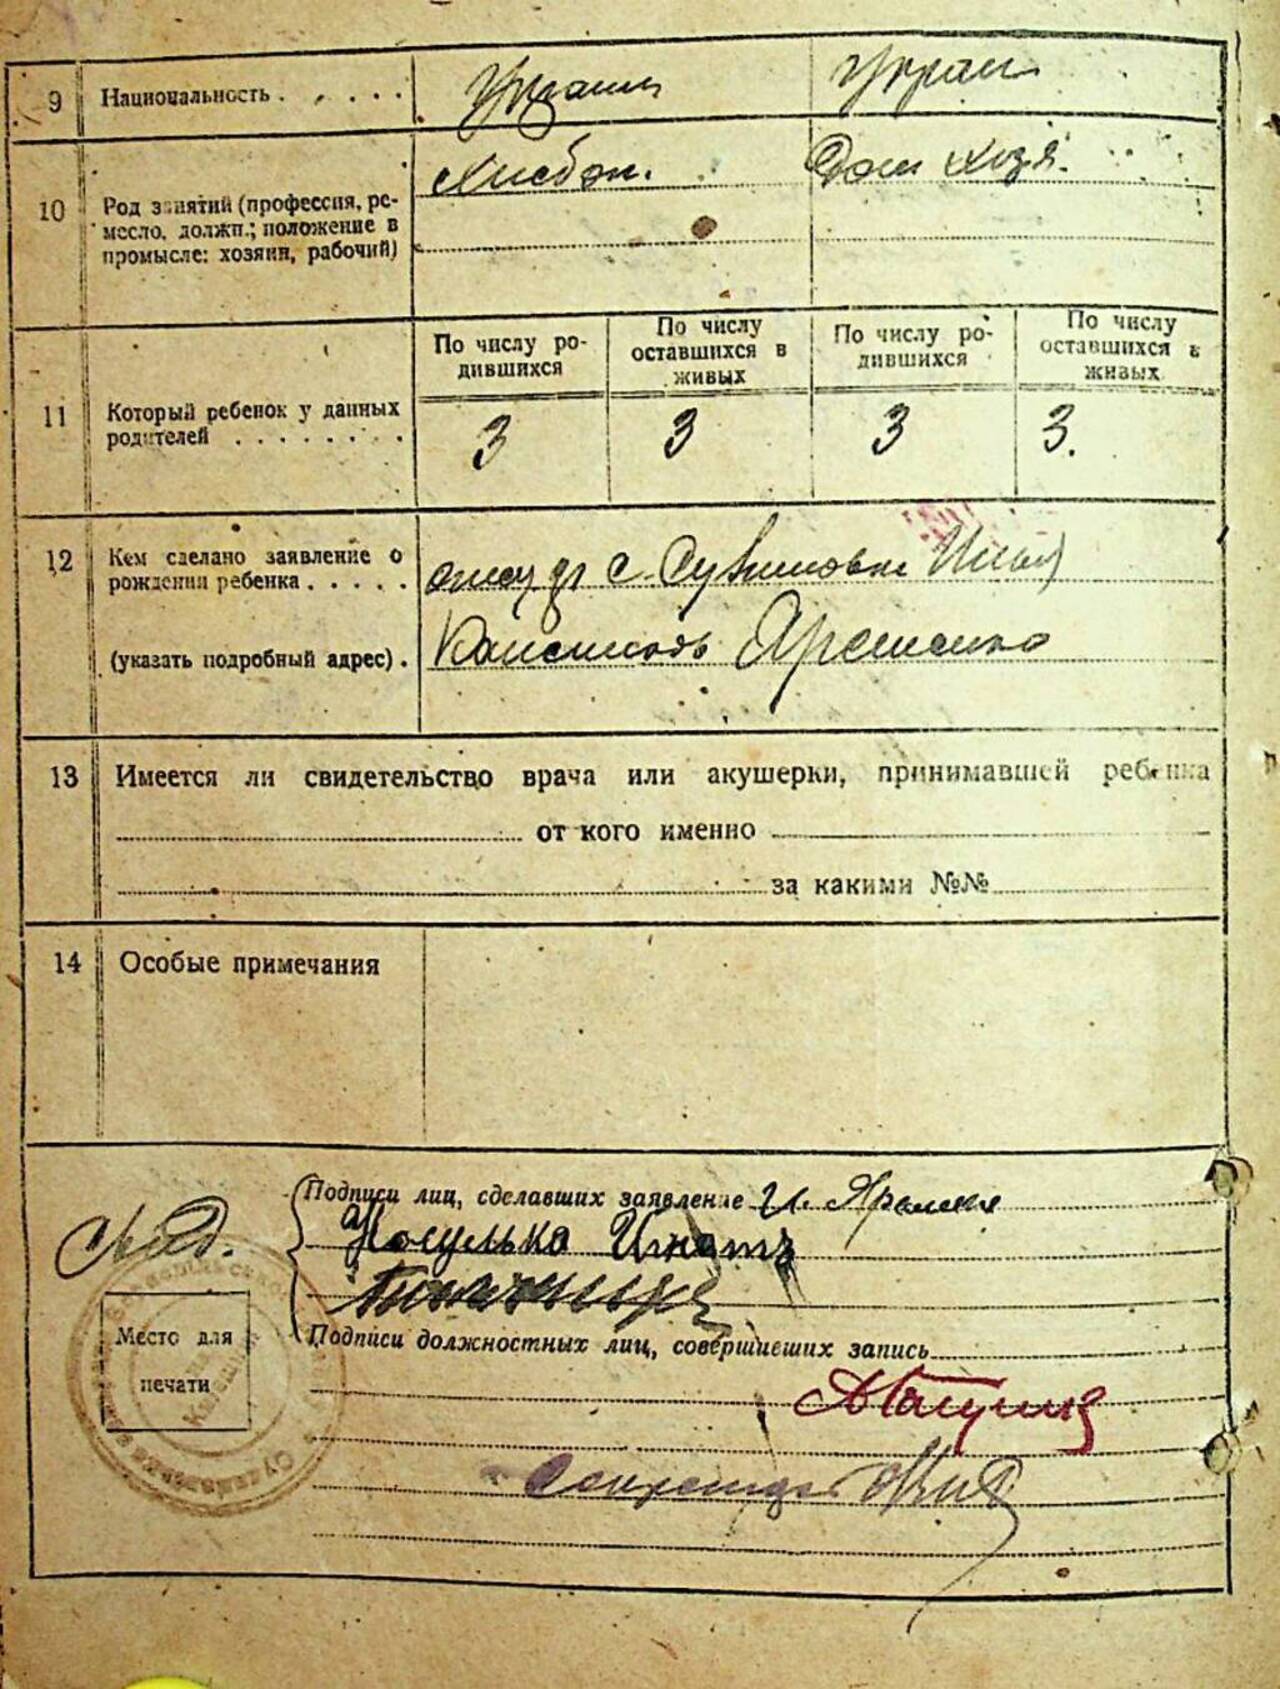 9 Национальность . . . . . Украин Украин
10 Род занятий (профессия, ре-
месло, должн.; положение в
промысле: хозяин, рабочий)
Хлебоп. Дом хозя.
По числу ро-
дившихся
По числу
оставшихся в
живых
По числу ро-
дившихся
По числу
оставшихся в
живых
11 Который ребенок у данных
родителей . . . . . . . .
3 3 3 3.
12 Кем сделано заявление о
рождении ребенка . . . . .
с.
(указать подробный адрес) .
Яременко
13 Имеется ли свидетельство врача или акушерки, принимавшей ребенка
от кого именно
за какими №№
14 Особые примечания
Подписи лиц, сделавших заявление И.
Игнат
Место для
печати
Подписи должностных лиц, совершивших запись
Секретарь